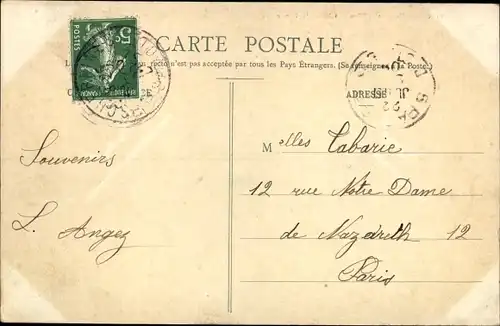 CARTE POSTALE
recto n'est pas acceptée par tous les Pays Étrangers. (Se renseigner à la Poste.)
5c
POSTES
ADRESSE
Souvenirs
L. Angez
Melles Cabarie
12 rue Notre Dame
de Nazareth 12
Paris